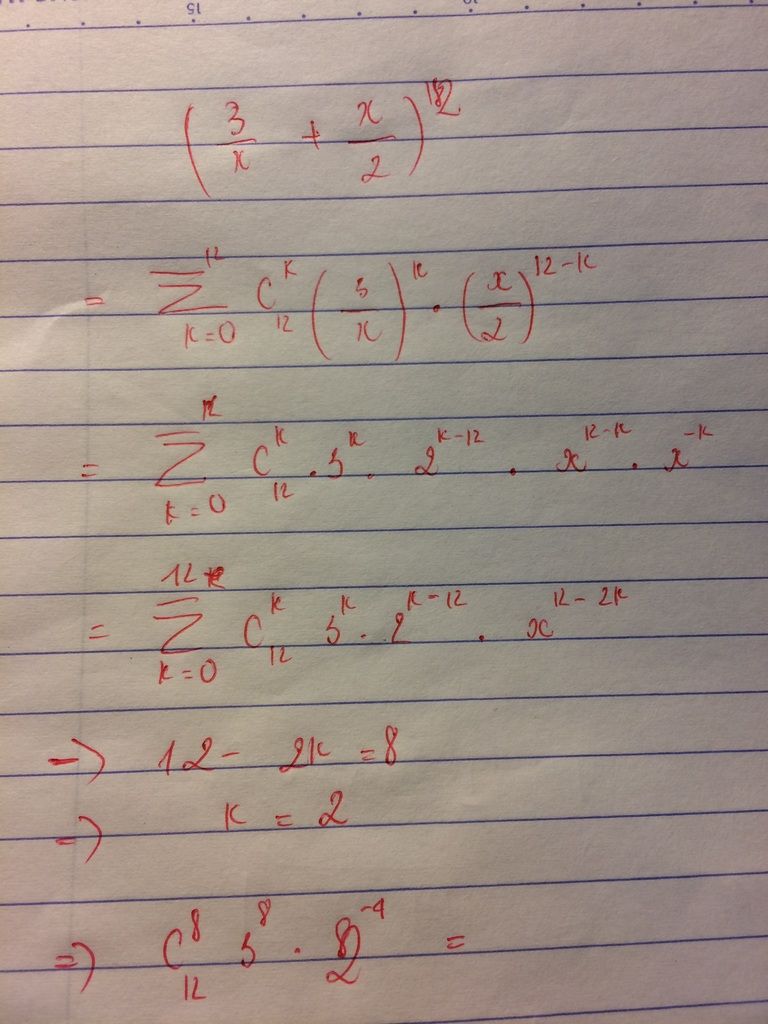 15
(3/x + x/2)^12
= Σ_{k=0}^{12} C_{12}^{k} (3/x)^k · (x/2)^{12-k}
= Σ_{k=0}^{12} C_{12}^{k} · 3^k · 2^{k-12} · x^{12-k} · x^{-k}
= Σ_{k=0}^{12} C_{12}^{k} 3^k · 2^{k-12} · x^{12-2k}
→) 12 - 2k = 8
=) k = 2
=) C_{12}^{8} 3^8 · 2^{-4} =